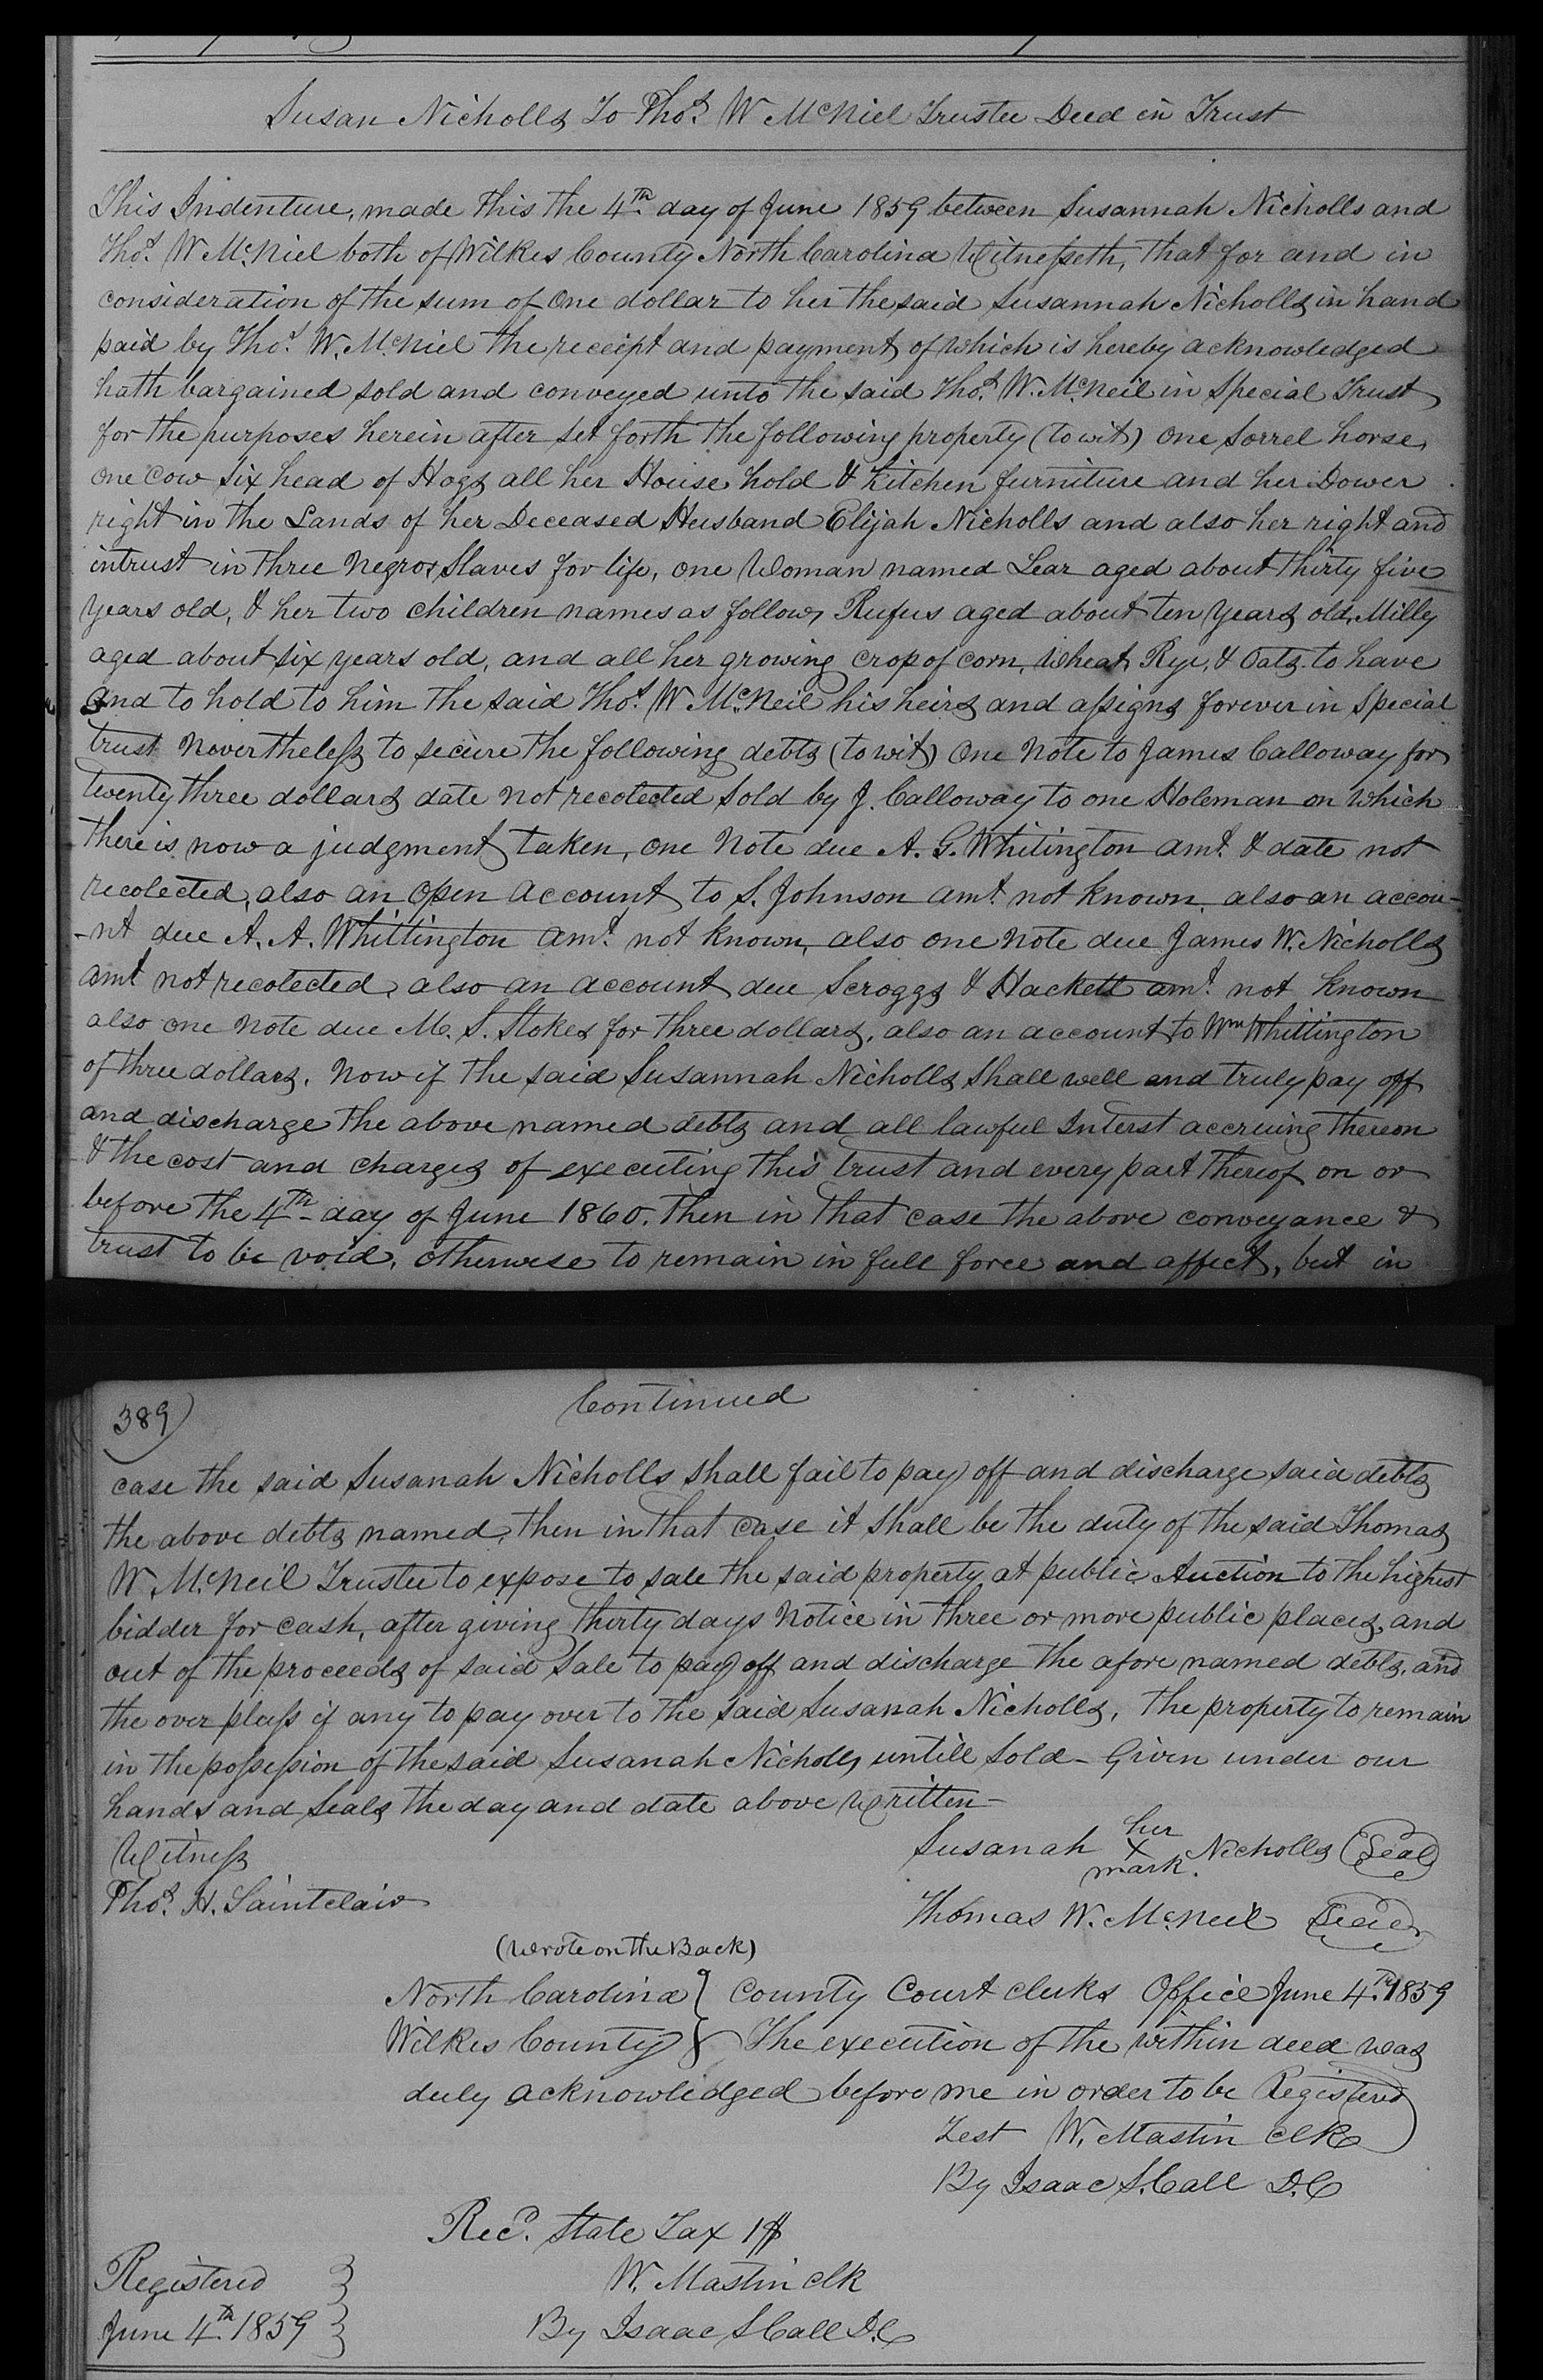 Susan Nicholls To Thos. W McNiel Trustee Deed in Trust
This Indenture, made this the 4th day of June 1859 between Susannah Nicholls and
Thos. W McNiel both of Wilkes County North Carolina Witnesseth, that for and in
consideration of the sum of One dollar to her the said Susannah Nicholls in hand
paid by Thos. W. McNiel the receipt and payment of which is hereby acknowledged
hath bargained sold and conveyed unto the said Thos. W. McNeil in Special Trust
for the purposes herein after set forth the following property (to wit) one Sorrel horse,
one Cow six head of Hogs all her House hold & Kitchen furniture and her Dower
right in the Lands of her Deceased Husband Elijah Nicholls and also her right and
intrust in three Negros Slaves for life, one Woman named Lear aged about thirty five
years old, & her two children names as follow, Rufus aged about ten years old, Milly
aged about six years old, and all her growing crop of corn, Wheat, Rye, & Oats. to have
and to hold to him the said Thos. W McNeil his heirs and assigns forever in Special
trust Novertheless to secure the following debts (to wit) One Note to James Calloway for
twenty three dollars date not recolected Sold by J. Calloway to one Holeman on which
there is now a judgment taken, one Note due A. G. Whitington amt. & date not
recolected, also an Open account to S. Johnson amt. not known, also an accou-
-nt due A. A. Whittington amt. not known, also one note due James W. Nicholls
amt not recolected, also an account due Scroggs & Hackett amt. not known
also one note due M. S. Stokes for three dollars, also an account to Wm Whittington
of three dollars. Now if the said Susannah Nicholls Shall well and truly pay off
and discharge the above named debts and all lawful Interst accruing thereon
& the cost and charges of executing this trust and every part thereof on or
before the 4th day of June 1860. then in that case the above conveyance &
trust to be void, otherwese to remain in full force and affect, but in
389)
Continued
case the said Susanah Nicholls shall fail to pay off and discharge said debts
the above debts named, then in that case it shall be the duty of the said Thomas
W. McNeil Trustee to expose to sale the said property at public Auction to the highest
bidder for cash, after giving thirty days Notice in three or more public places, and
out of the proceeds of said Sale to pay off and discharge the afore named debts, and
the over pluss if any to pay over to the said Susanah Nicholls, the property to remain
in the possession of the said Susanah Nicholls untill Sold - Given under our
hands and Seals the day and date above Written -
Witness
Susanah her X mark. Nicholls (Seal)
Thos. H. Saintclair
Thomas W. McNeil (Seal)
(Wrote on the Back)
North Carolina } County Court clerks Office June 4th. 1859
Wilkes County } The execution of the within deed was
duly acknowledged before me in order to be Registered
Test W. Mastin Clk
By Isaac S. Call D.C
Recd. State Tax 1$
Registered } W. Mastin clk
June 4th. 1859 } By Isaac S Call D.C